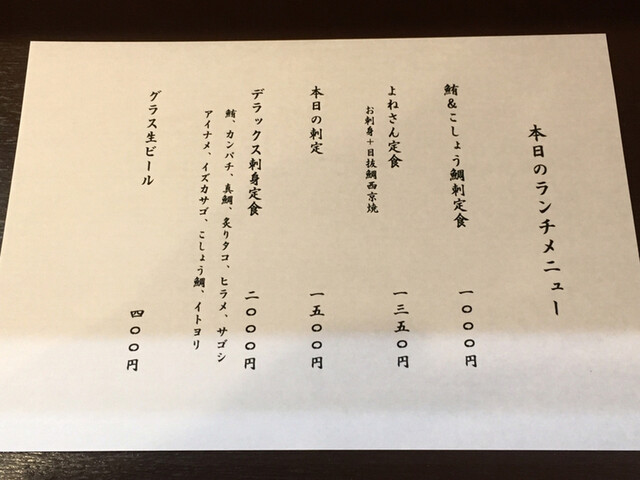 本日のランチメニュー
鮪&こしょう鯛刺定食 一〇〇〇円
よねさん定食 一三五〇円
お刺身+目抜鯛西京焼
本日の刺定 一五〇〇円
デラックス刺身定食 二〇〇〇円
鮪、カンパチ、真鯛、炙りタコ、ヒラメ、サゴシ
アイナメ、イズカサゴ、こしょう鯛、イトヨリ
グラス生ビール 四〇〇円